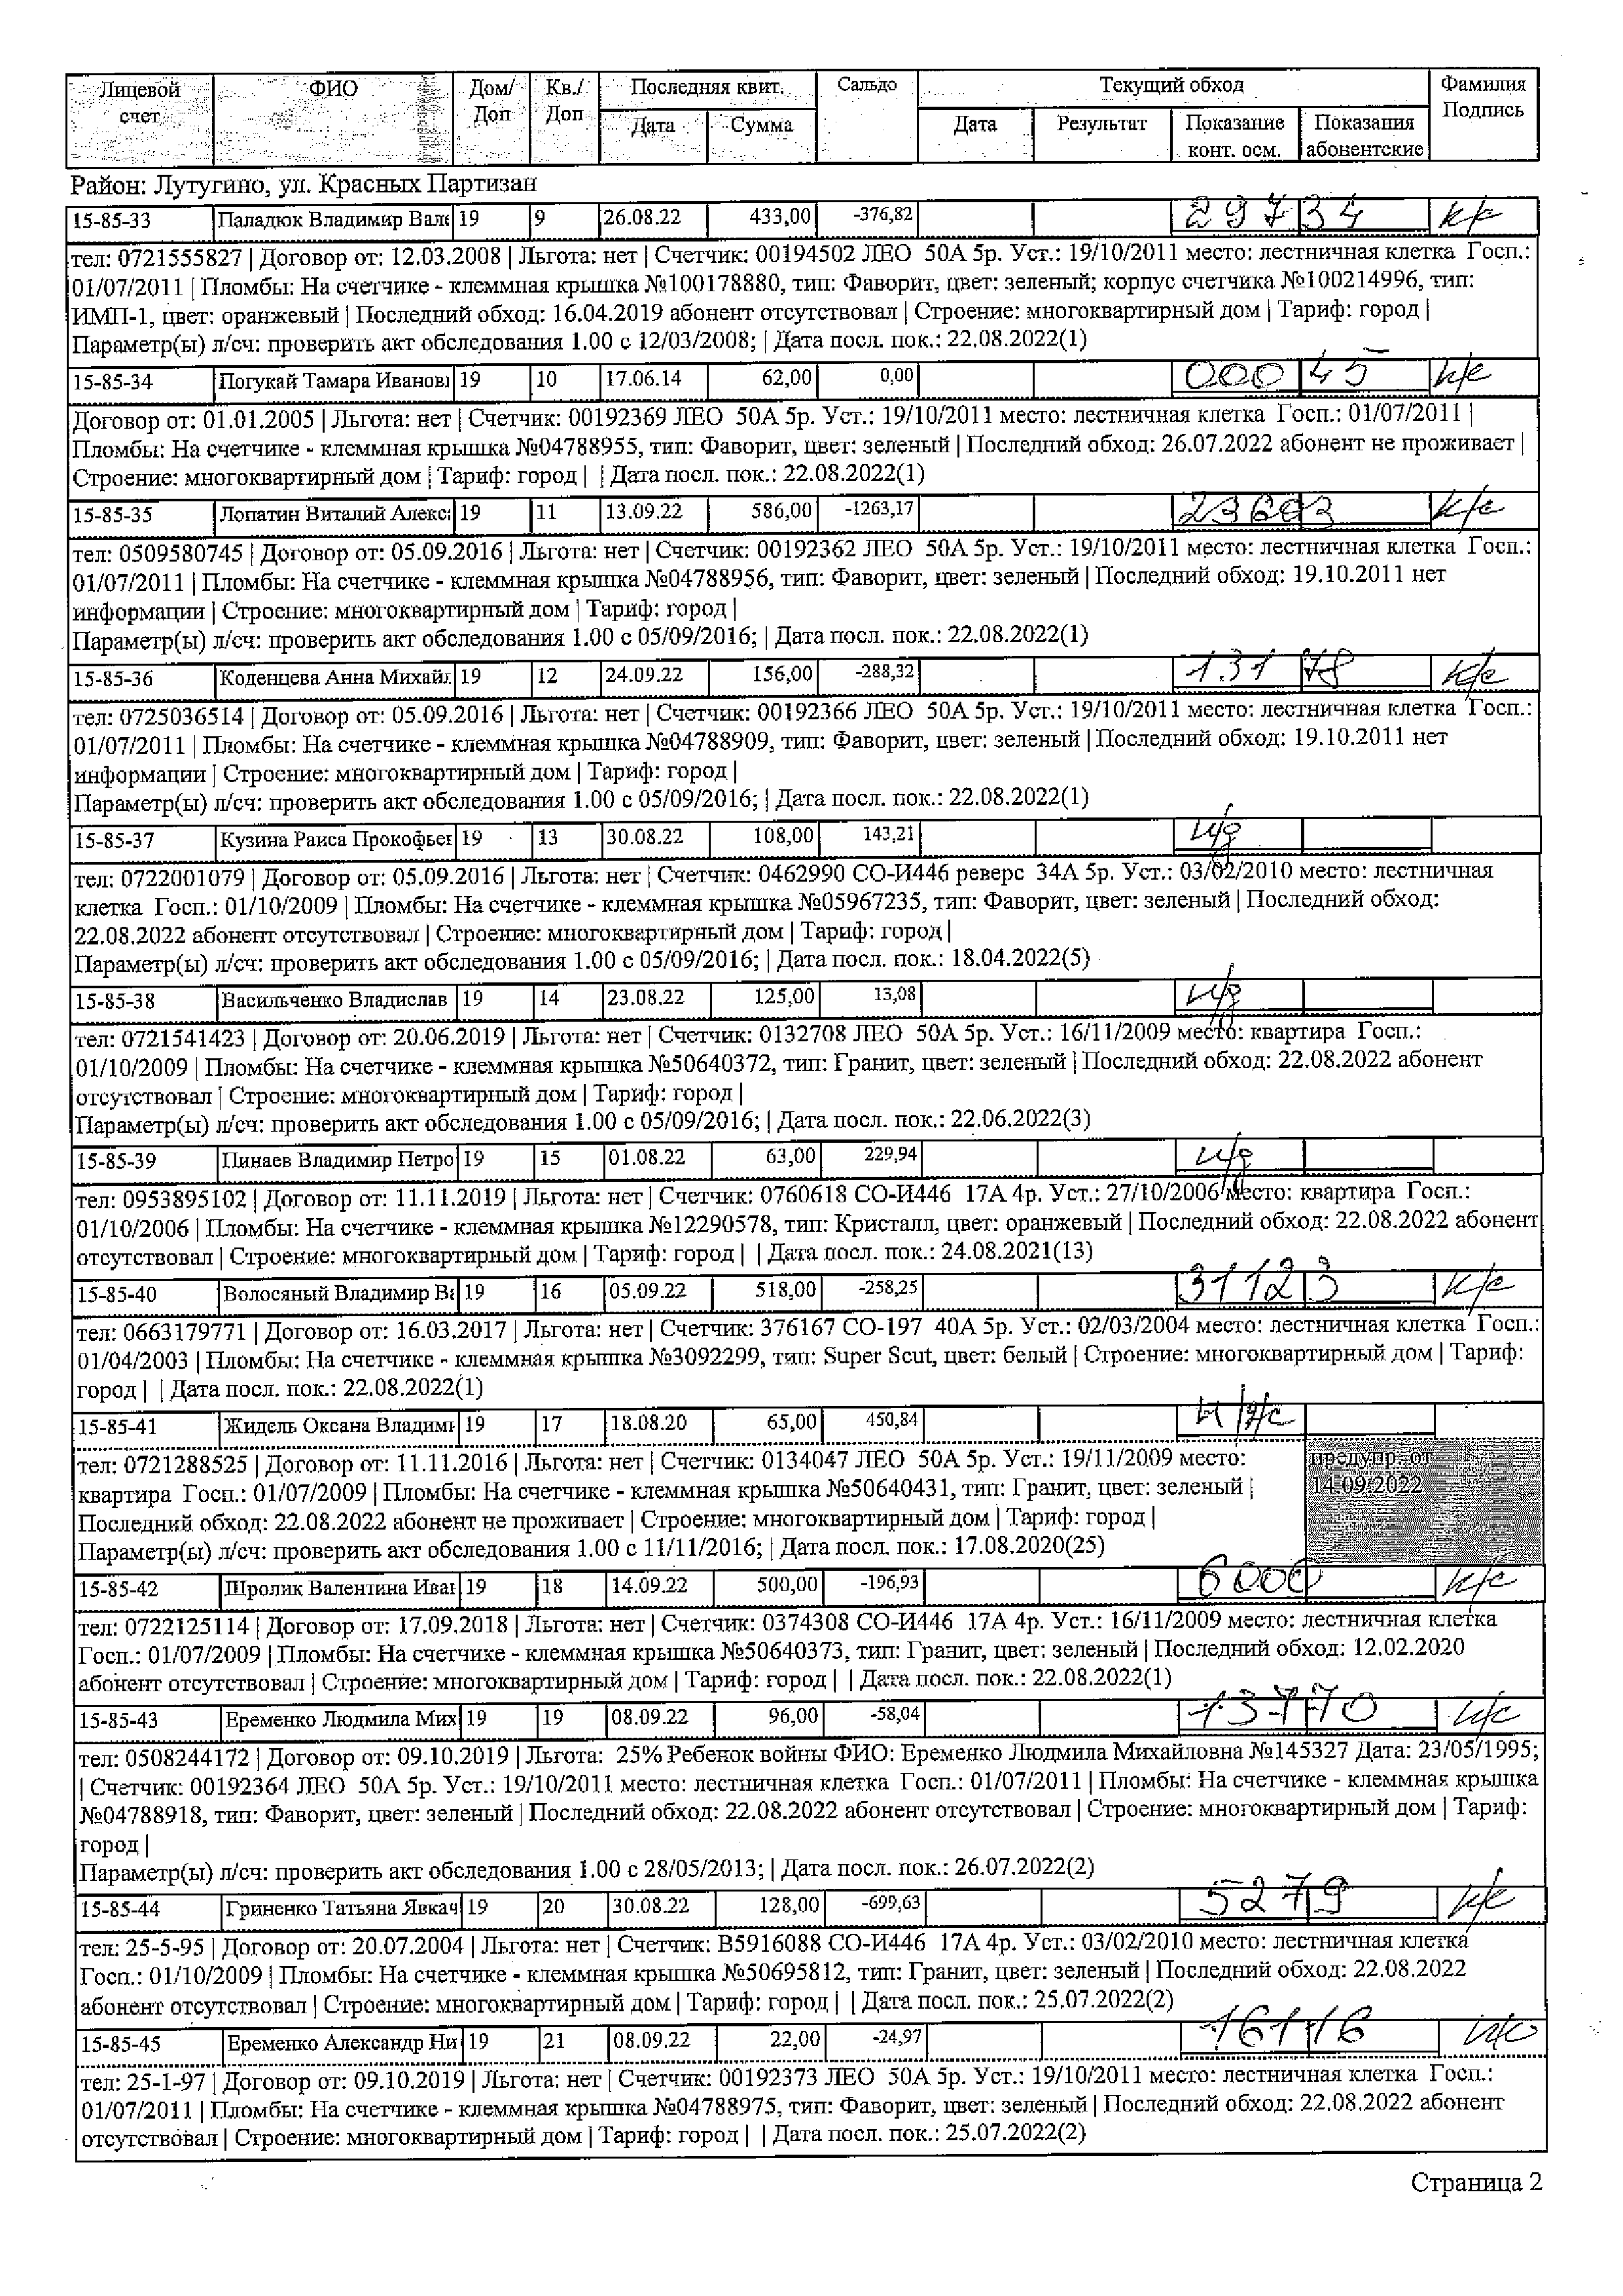 Лицевой счет ФИО Дом/ Доп Кв./ Доп Последняя квит. Сальдо Текущий обход Фамилия Подпись
Дата Сумма Дата Результат Показание конт. осм. Показания абонентские
Район: Лутугино, ул. Красных Партизан
15-85-33 Паладюк Владимир Вале 19 9 26.08.22 433,00 -376,82 29734 к/с
тел: 0721555827 | Договор от: 12.03.2008 | Льгота: нет | Счетчик: 00194502 ЛЕО 50А 5р. Уст.: 19/10/2011 место: лестничная клетка Госп.:
01/07/2011 | Пломбы: На счетчике - клеммная крышка №100178880, тип: Фаворит, цвет: зеленый; корпус счетчика №100214996, тип:
ИМП-1, цвет: оранжевый | Последний обход: 16.04.2019 абонент отсутствовал | Строение: многоквартирный дом | Тариф: город |
Параметр(ы) л/сч: проверить акт обследования 1.00 с 12/03/2008; | Дата посл. пок.: 22.08.2022(1)
15-85-34 Погукай Тамара Иванові 19 10 17.06.14 62,00 0,00 00045 к/с
Договор от: 01.01.2005 | Льгота: нет | Счетчик: 00192369 ЛЕО 50А 5р. Уст.: 19/10/2011 место: лестничная клетка Госп.: 01/07/2011 |
Пломбы: На счетчике - клеммная крышка №04788955, тип: Фаворит, цвет: зеленый | Последний обход: 26.07.2022 абонент не проживает |
Строение: многоквартирный дом | Тариф: город | | Дата посл. пок.: 22.08.2022(1)
15-85-35 Лопатин Виталий Алекс 19 11 13.09.22 586,00 -1263,17 к/с
тел: 0509580745 | Договор от: 05.09.2016 | Льгота: нет | Счетчик: 00192362 ЛЕО 50А 5р. Уст.: 19/10/2011 место: лестничная клетка Госп.:
01/07/2011 | Пломбы: На счетчике - клеммная крышка №04788956, тип: Фаворит, цвет: зеленый | Последний обход: 19.10.2011 нет
информации | Строение: многоквартирный дом | Тариф: город |
Параметр(ы) л/сч: проверить акт обследования 1.00 с 05/09/2016; | Дата посл. пок.: 22.08.2022(1)
15-85-36 Коденцева Анна Михай 19 12 24.09.22 156,00 -288,32 13178 к/с
тел: 0725036514 | Договор от: 05.09.2016 | Льгота: нет | Счетчик: 00192366 ЛЕО 50А 5р. Уст.: 19/10/2011 место: лестничная клетка Госп.:
01/07/2011 | Пломбы: На счетчике - клеммная крышка №04788909, тип: Фаворит, цвет: зеленый | Последний обход: 19.10.2011 нет
информации | Строение: многоквартирный дом | Тариф: город |
Параметр(ы) л/сч: проверить акт обследования 1.00 с 05/09/2016; | Дата посл. пок.: 22.08.2022(1)
15-85-37 Кузина Раиса Прокофье 19 13 30.08.22 108,00 143,21 н/д
тел: 0722001079 | Договор от: 05.09.2016 | Льгота: нет | Счетчик: 0462990 СО-И446 реверс 34А 5р. Уст.: 03/02/2010 место: лестничная
клетка Госп.: 01/10/2009 | Пломбы: На счетчике - клеммная крышка №05967235, тип: Фаворит, цвет: зеленый | Последний обход:
22.08.2022 абонент отсутствовал | Строение: многоквартирный дом | Тариф: город |
Параметр(ы) л/сч: проверить акт обследования 1.00 с 05/09/2016; | Дата посл. пок.: 18.04.2022(5)
15-85-38 Васильченко Владислав 19 14 23.08.22 125,00 13,08 н/д
тел: 0721541423 | Договор от: 20.06.2019 | Льгота: нет | Счетчик: 0132708 ЛЕО 50А 5р. Уст.: 16/11/2009 место: квартира Госп.:
01/10/2009 | Пломбы: На счетчике - клеммная крышка №50640372, тип: Гранит, цвет: зеленый | Последний обход: 22.08.2022 абонент
отсутствовал | Строение: многоквартирный дом | Тариф: город |
Параметр(ы) л/сч: проверить акт обследования 1.00 с 05/09/2016; | Дата посл. пок.: 22.06.2022(3)
15-85-39 Пинаев Владимир Петро 19 15 01.08.22 63,00 229,94 н/д
тел: 0953895102 | Договор от: 11.11.2019 | Льгота: нет | Счетчик: 0760618 СО-И446 17А 4р. Уст.: 27/10/2006 место: квартира Госп.:
01/10/2006 | Пломбы: На счетчике - клеммная крышка №12290578, тип: Кристалл, цвет: оранжевый | Последний обход: 22.08.2022 абонент
отсутствовал | Строение: многоквартирный дом | Тариф: город | | Дата посл. пок.: 24.08.2021(13)
15-85-40 Волосяный Владимир Ва 19 16 05.09.22 518,00 -258,25 31123 к/с
тел: 0663179771 | Договор от: 16.03.2017 | Льгота: нет | Счетчик: 376167 СО-197 40А 5р. Уст.: 02/03/2004 место: лестничная клетка Госп.:
01/04/2003 | Пломбы: На счетчике - клеммная крышка №3092299, тип: Super Scut, цвет: белый | Строение: многоквартирный дом | Тариф:
город | | Дата посл. пок.: 22.08.2022(1)
15-85-41 Жидель Оксана Владим 19 17 18.08.20 65,00 450,84 н/ж
тел: 0721288525 | Договор от: 11.11.2016 | Льгота: нет | Счетчик: 0134047 ЛЕО 50А 5р. Уст.: 19/11/2009 место: предупр. от
квартира Госп.: 01/07/2009 | Пломбы: На счетчике - клеммная крышка №50640431, тип: Гранит, цвет: зеленый | 14.09.2022
Последний обход: 22.08.2022 абонент не проживает | Строение: многоквартирный дом | Тариф: город |
Параметр(ы) л/сч: проверить акт обследования 1.00 с 11/11/2016; | Дата посл. пок.: 17.08.2020(25)
15-85-42 Шролик Валентина Ива 19 18 14.09.22 500,00 -196,93 6000 к/с
тел: 0722125114 | Договор от: 17.09.2018 | Льгота: нет | Счетчик: 0374308 СО-И446 17А 4р. Уст.: 16/11/2009 место: лестничная клетка
Госп.: 01/07/2009 | Пломбы: На счетчике - клеммная крышка №50640373, тип: Гранит, цвет: зеленый | Последний обход: 12.02.2020
абонент отсутствовал | Строение: многоквартирный дом | Тариф: город | | Дата посл. пок.: 22.08.2022(1)
15-85-43 Еременко Людмила Мих 19 19 08.09.22 96,00 -58,04 13770 к/с
тел: 0508244172 | Договор от: 09.10.2019 | Льгота: 25% Ребенок войны ФИО: Еременко Людмила Михайловна №145327 Дата: 23/05/1995;
| Счетчик: 00192364 ЛЕО 50А 5р. Уст.: 19/10/2011 место: лестничная клетка Госп.: 01/07/2011 | Пломбы: На счетчике - клеммная крышка
№04788918, тип: Фаворит, цвет: зеленый | Последний обход: 22.08.2022 абонент отсутствовал | Строение: многоквартирный дом | Тариф:
город |
Параметр(ы) л/сч: проверить акт обследования 1.00 с 28/05/2013; | Дата посл. пок.: 26.07.2022(2)
15-85-44 Гриненко Татьяна Явкач 19 20 30.08.22 128,00 -699,63 5279 к/с
тел: 25-5-95 | Договор от: 20.07.2004 | Льгота: нет | Счетчик: В5916088 СО-И446 17А 4р. Уст.: 03/02/2010 место: лестничная клетка
Госп.: 01/10/2009 | Пломбы: На счетчике - клеммная крышка №50695812, тип: Гранит, цвет: зеленый | Последний обход: 22.08.2022
абонент отсутствовал | Строение: многоквартирный дом | Тариф: город | | Дата посл. пок.: 25.07.2022(2)
15-85-45 Еременко Александр Ни 19 21 08.09.22 22,00 -24,97 16116 к/с
тел: 25-1-97 | Договор от: 09.10.2019 | Льгота: нет | Счетчик: 00192373 ЛЕО 50А 5р. Уст.: 19/10/2011 место: лестничная клетка Госп.:
01/07/2011 | Пломбы: На счетчике - клеммная крышка №04788975, тип: Фаворит, цвет: зеленый | Последний обход: 22.08.2022 абонент
отсутствовал | Строение: многоквартирный дом | Тариф: город | | Дата посл. пок.: 25.07.2022(2)
Страница 2